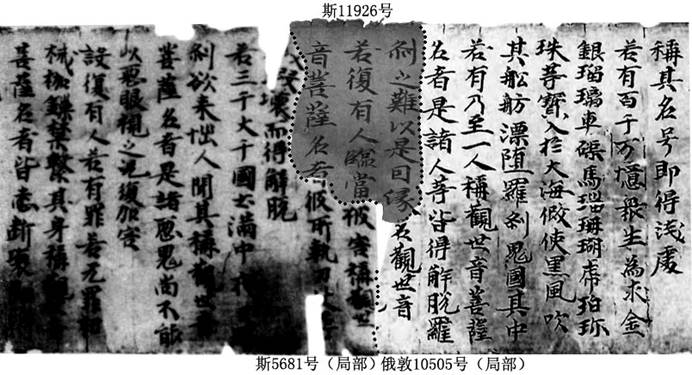 斯11926号
稱其名号即得淺處
若有百千万億眾生為求金
銀瑠璃車磲馬瑙珊瑚虎珀珎
珠等寶入於大海假使黑風吹
其舩舫漂堕羅刹鬼國其中
若有乃至一人稱觀世音菩薩
名者是諸人等皆得解脫羅
刹之難以是因緣名觀世音
若復有人臨當被害稱觀世
音菩薩名者彼所執刀
壞而得解脫
若三千大千國土滿中
刹欲来惱人聞其稱觀世音
菩薩名者是諸惡鬼尚不能
以惡眼視之况復加害
設復有人若有罪若无罪杻
械枷鏁禁繫其身稱觀
菩薩名者皆悉斷壞
斯5681号（局部）
俄敦10505号（局部）